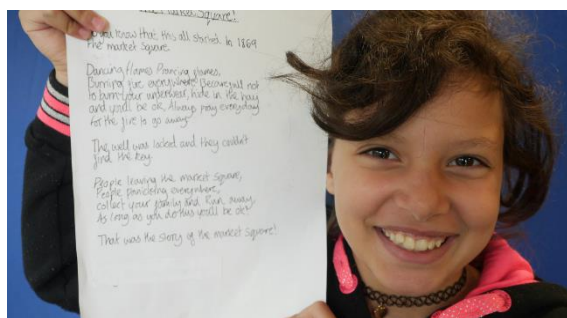 Market Square!
you know that this all started in 1869
the market Square
Dancing flames Prancing flames,
Burning fire everywhere Becareful not
to burn your underwear, hide in the bay
and you'll be ok, Always pray everyday
for the fire to go away
The well was locked and they couldn't
find the key.
People leaving the market square,
People panicking everywhere,
collect your family and Run away
As long as you do this you'll be ok!
That was the story of the market square!